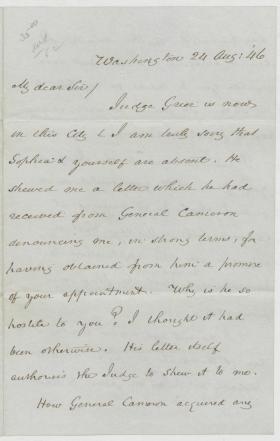 Washington 24 Aug: 46
My dear Sir/
Judge Grier is now
in this City & I am truly sorry that
Sophia & yourself are absent. He
shewed me a letter which he had
received from General Cameron
denouncing me, in strong terms, for
having obtained from him a promise
of your appointment. Why is he so
hostile to you? I thought it had
been otherwise. His letter itself
authorises the Judge to shew it to me.
How General Cameron acquired any